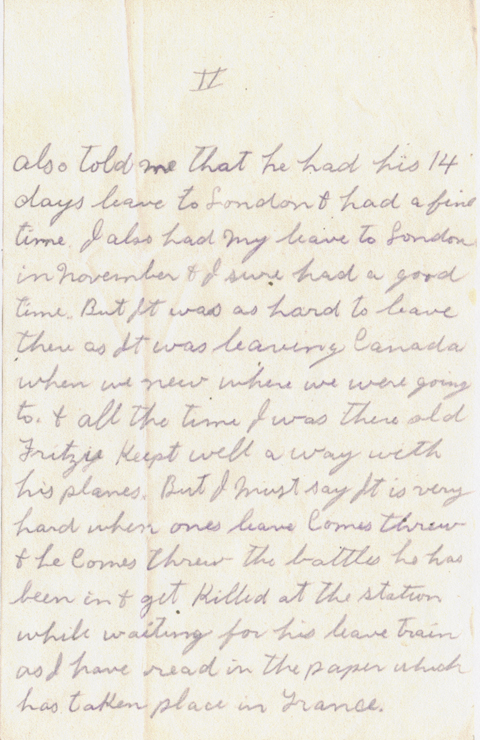 II
also told me that he had his 14
days leave to London & had a fine
time. I also had my leave to London
in november & I sure had a good
time. But It was as hard to leave
there as It was leaveing Canada
when we new where we were going
to. & all the time I was there old
Fritzy Keept well a way with
his planes. But I must say It is very
hard when ones leave Comes threw
& he Comes threw the battles he has
been in & get Killed at the station
while waiting for his leave train
as I have read in the paper which
has taken place in France.